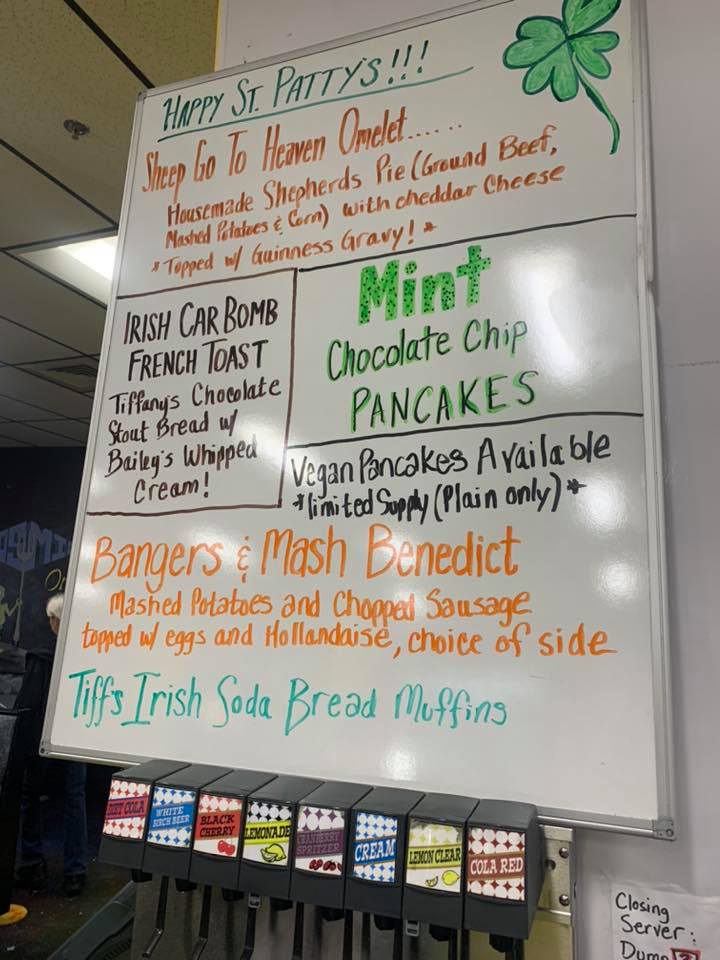 HAPPY ST. PATTY'S!!!
Sheep Go To Heaven Omelet......
Housemade Shepherds Pie (Ground Beef,
Mashed Potatoes & Corn) with cheddar Cheese
*Topped w/ Guinness Gravy!*
IRISH CAR BOMB
FRENCH TOAST
Tiffany's Chocolate
Stout Bread w/
Bailey's Whipped
Cream!
Mint
Chocolate Chip
PANCAKES
Vegan Pancakes Available
*limited Supply (Plain only)*
Bangers & Mash Benedict
Mashed Potatoes and Chopped Sausage
topped w/ eggs and Hollandaise, choice of side
Tiff's Irish Soda Bread Muffins
DIET COLA
WHITE
BIRCH BEER
BLACK
CHERRY
LEMONADE
CRANBERRY
SPRITZER
CREAM
LEMON CLEAR
COLA RED
Closing
Server:
Dump